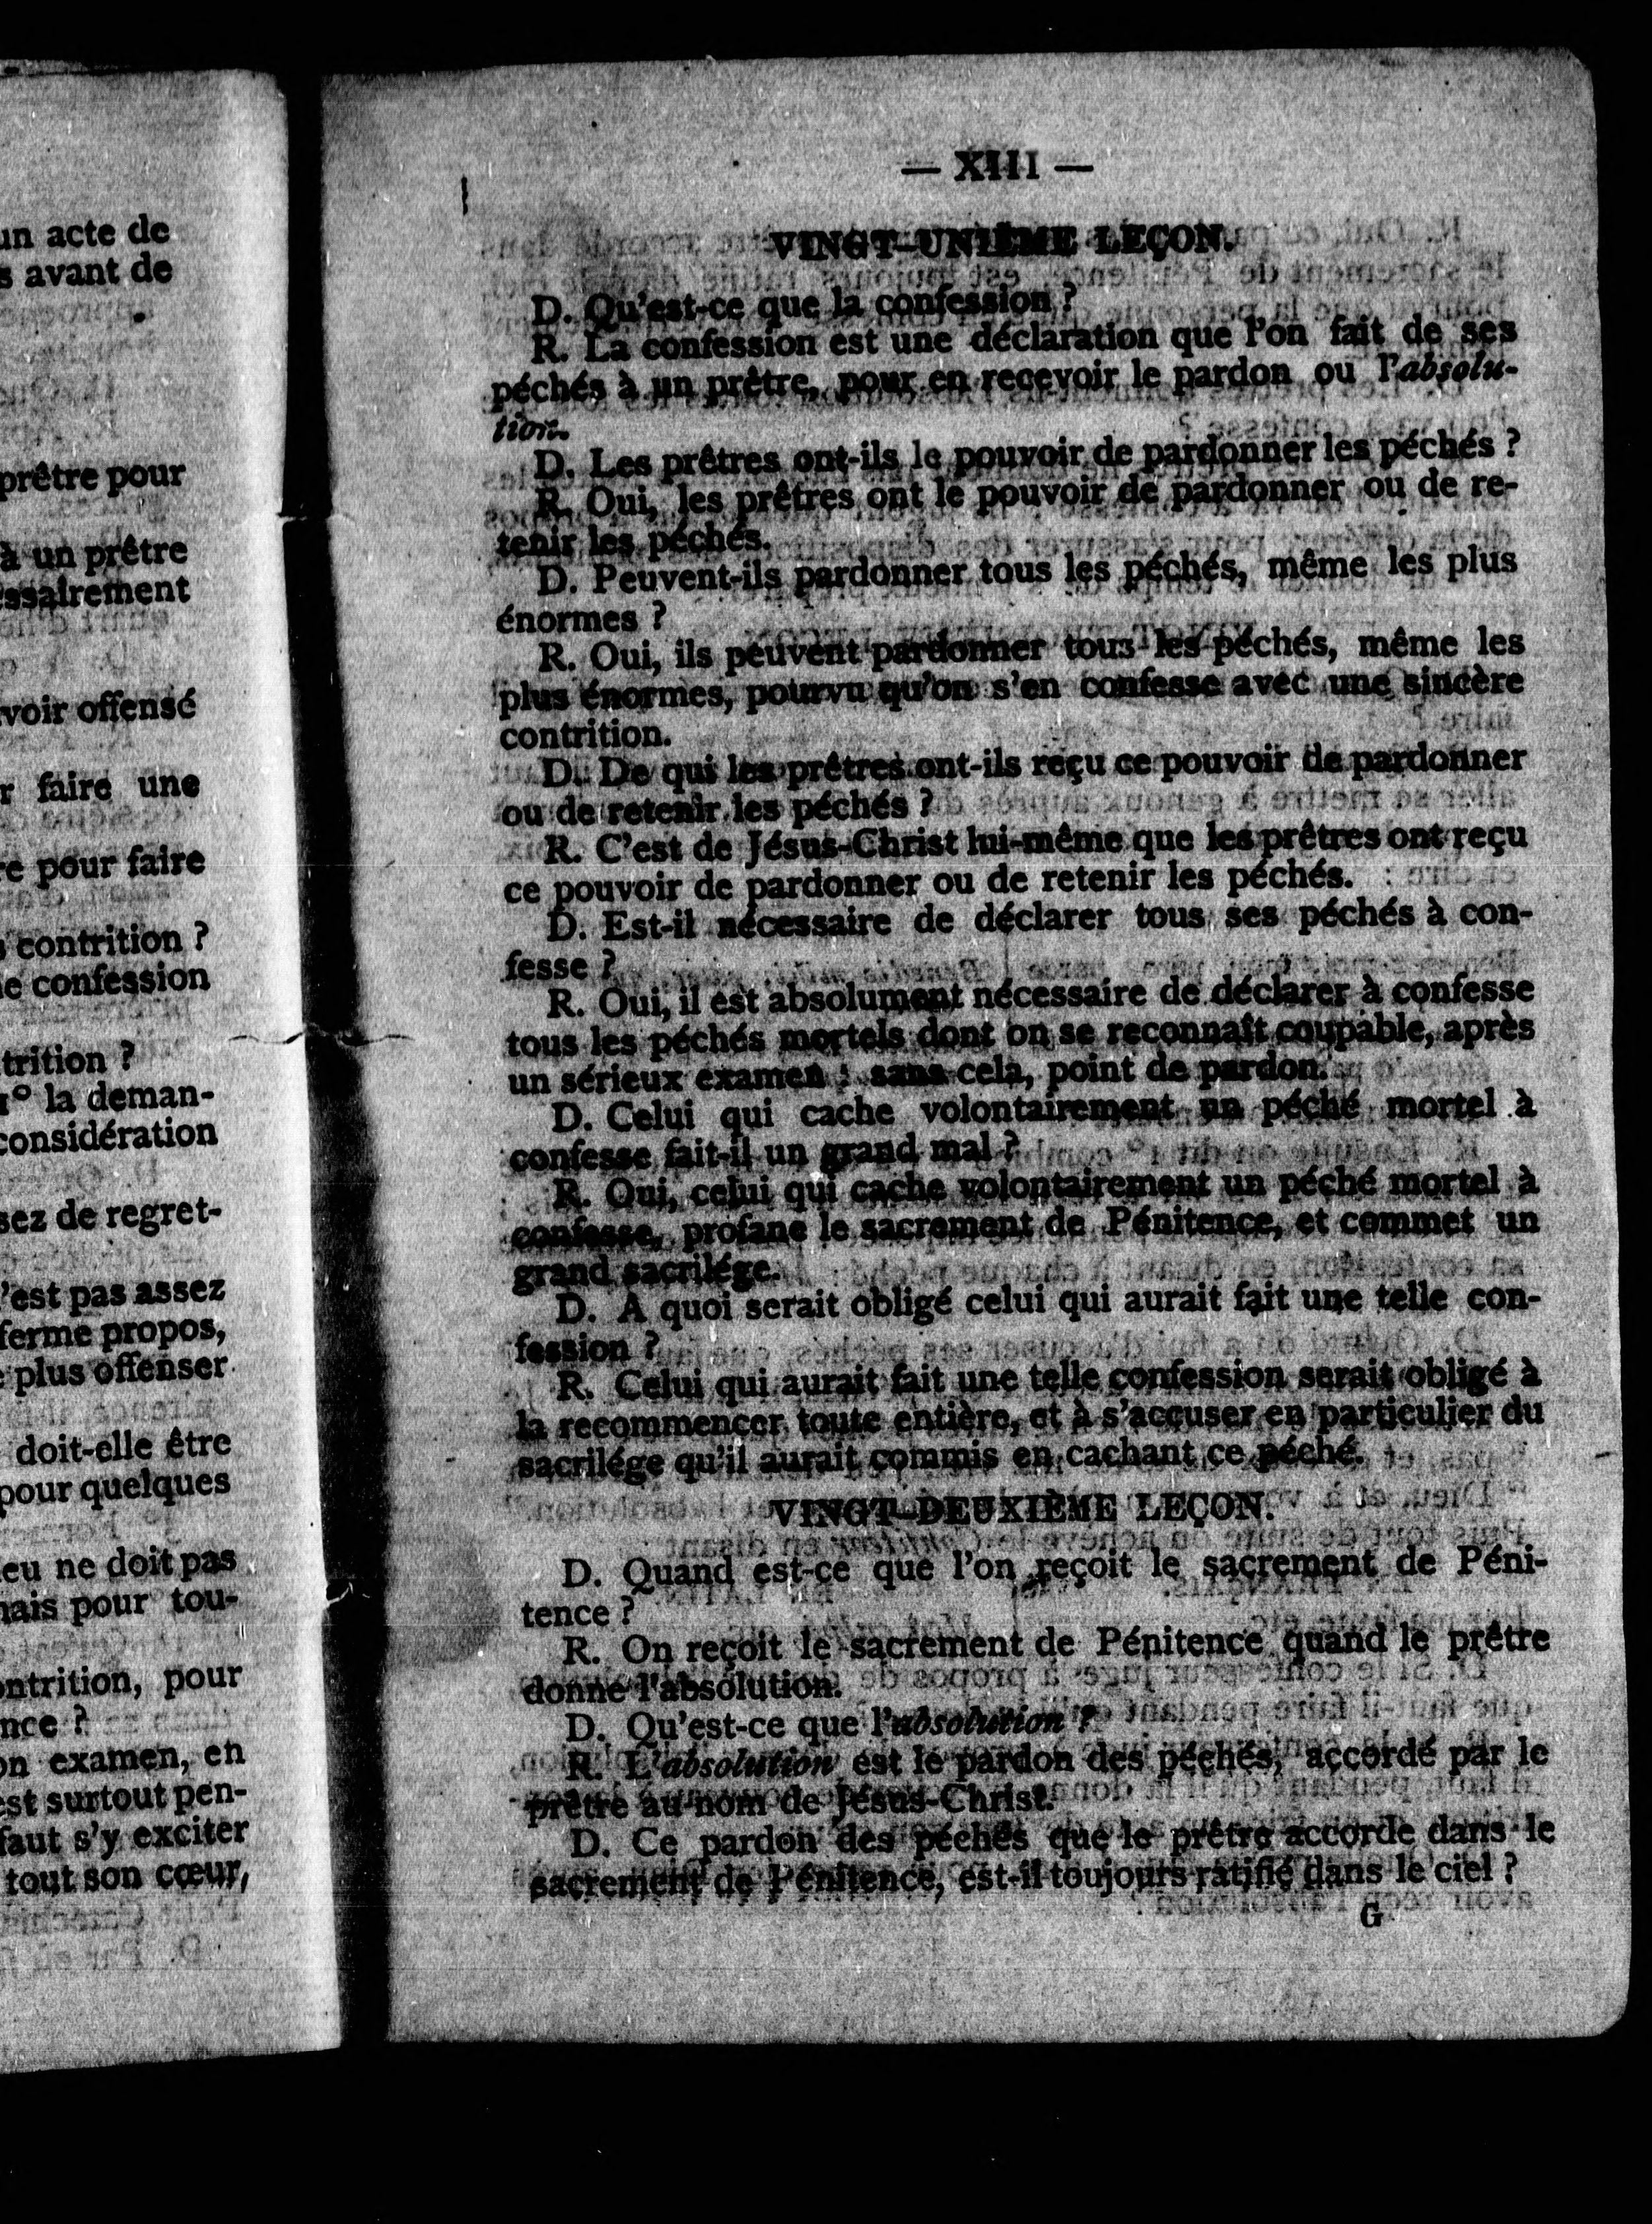 un acte de
s avant de
prêtre pour
à un prêtre
essairement
voir offensé
r faire une
re pour faire
contrition ?
ne confession
trition ?
1° la deman-
considération
sez de regret-
'est pas assez
ferme propos,
e plus offenser
doit-elle être
pour quelques
ieu ne doit pas
mais pour tou-
ontrition, pour
nce ?
on examen, en
est surtout pen-
faut s'y exciter
tout son cœur,
— XIII —
VINGT-UNIÈME LEÇON.
D. Qu'est-ce que la confession ?
R. La confession est une déclaration que l'on fait de ses
péchés à un prêtre, pour en recevoir le pardon ou l'absolu-
tion.
D. Les prêtres ont-ils le pouvoir de pardonner les péchés ?
R. Oui, les prêtres ont le pouvoir de pardonner ou de re-
tenir les péchés.
D. Peuvent-ils pardonner tous les péchés, même les plus
énormes ?
R. Oui, ils peuvent pardonner tous les péchés, même les
plus énormes, pourvu qu'on s'en confesse avec une sincère
contrition.
D. De qui les prêtres ont-ils reçu ce pouvoir de pardonner
ou de retenir les péchés ?
R. C'est de Jésus-Christ lui-même que les prêtres ont reçu
ce pouvoir de pardonner ou de retenir les péchés.
D. Est-il nécessaire de déclarer tous ses péchés à con-
fesse ?
R. Oui, il est absolument nécessaire de déclarer à confesse
tous les péchés mortels dont on se reconnaît coupable, après
un sérieux examen : sans cela, point de pardon.
D. Celui qui cache volontairement un péché mortel à
confesse fait-il un grand mal ?
R. Oui, celui qui cache volontairement un péché mortel à
confesse, profane le sacrement de Pénitence, et commet un
grand sacrilége.
D. A quoi serait obligé celui qui aurait fait une telle con-
fession ?
R. Celui qui aurait fait une telle confession serait obligé à
la recommencer toute entière, et à s'accuser en particulier du
sacrilége qu'il aurait commis en cachant ce péché.
VINGT-DEUXIÈME LEÇON.
D. Quand est-ce que l'on reçoit le sacrement de Péni-
tence ?
R. On reçoit le sacrement de Pénitence quand le prêtre
donne l'absolution.
D. Qu'est-ce que l'absolution ?
R. L'absolution est le pardon des péchés, accordé par le
prêtre au nom de Jésus-Christ.
D. Ce pardon des péchés que le prêtre accorde dans le
sacrement de Pénitence, est-il toujours ratifié dans le ciel ?
G